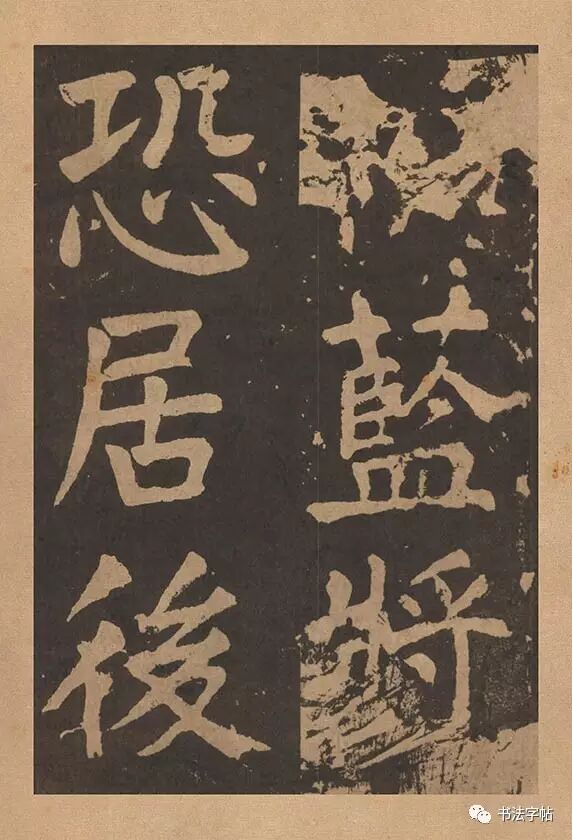 藍將
恐居後
书法字帖